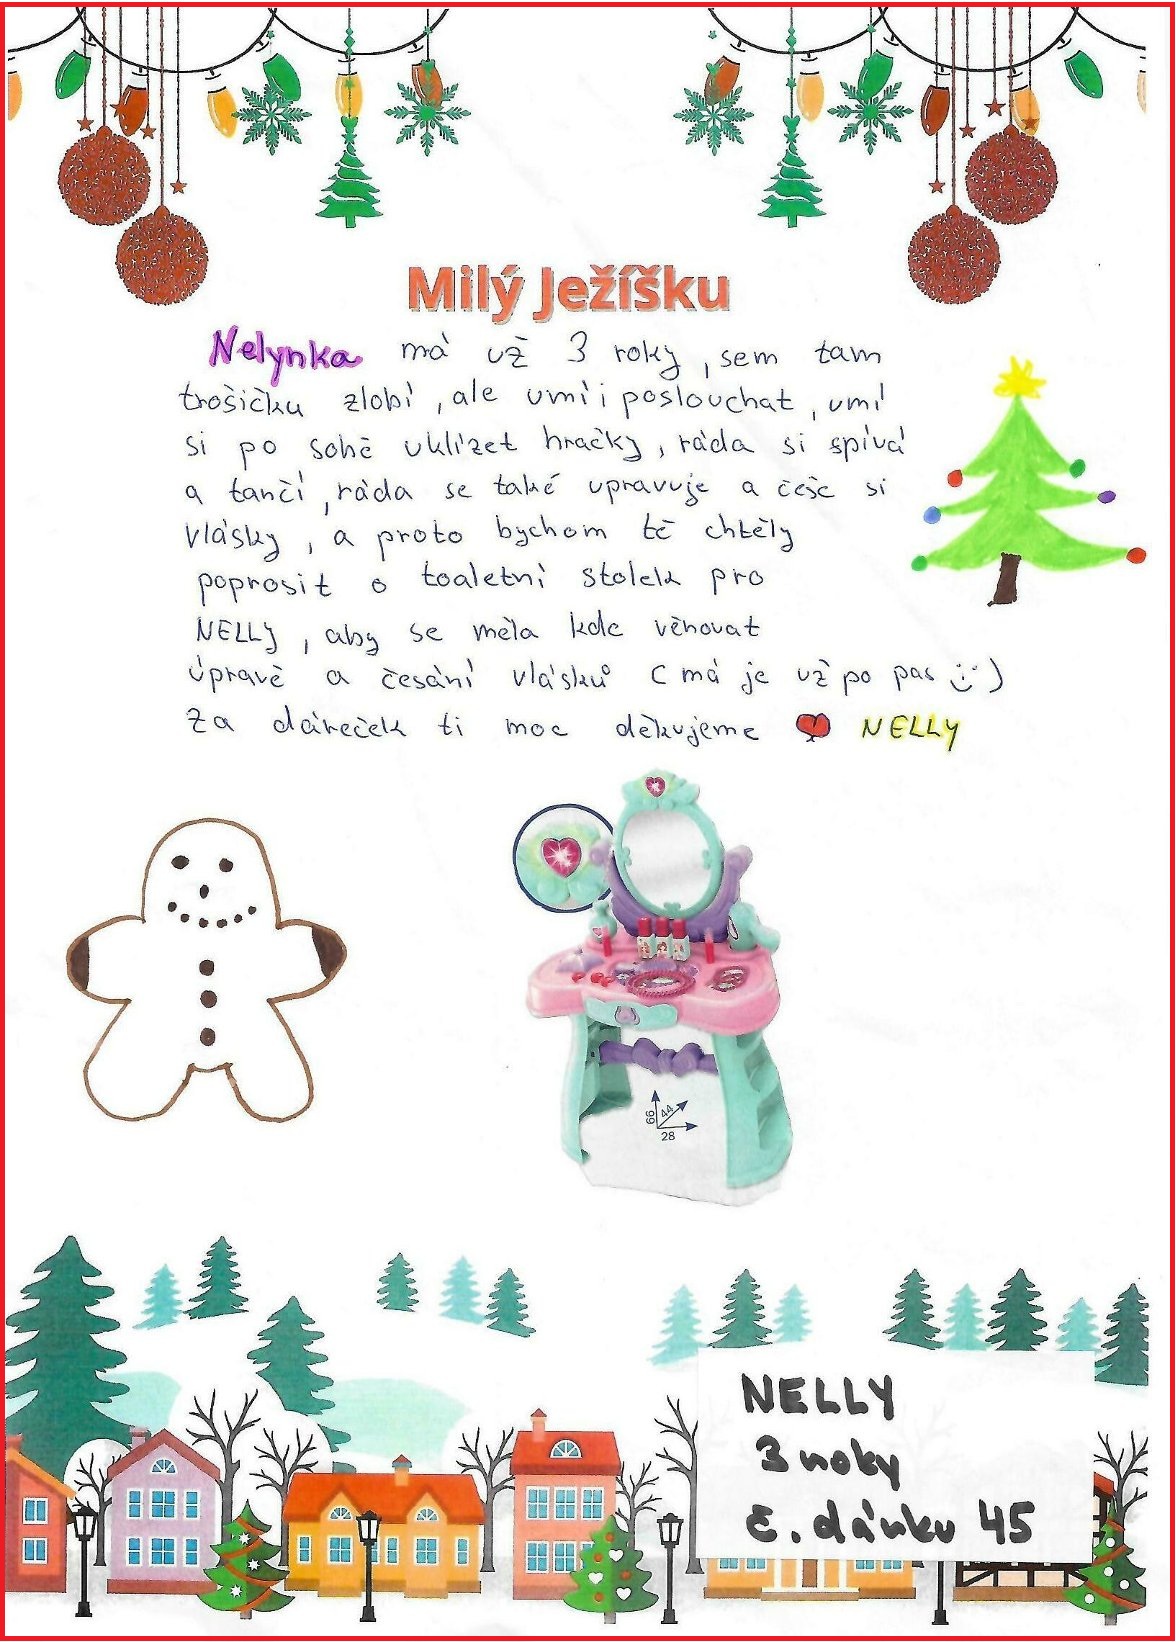 Milý Ježíšku
Nelynka má už 3 roky, sem tam
trošičku zlobí, ale umí i poslouchat, umí
si po sobě uklízet hračky, ráda si zpívá
a tančí, ráda se také upravuje a češe si
vlásky, a proto bychom tě chtěly
poprosit o toaletní stolek pro
NELLY, aby se měla kde věnovat
úpravě a česání vlásků (má je už po pas :))
Za dáreček ti moc děkujeme NELLY
66 44
28
NELLY
3 roky
č. dárku 45